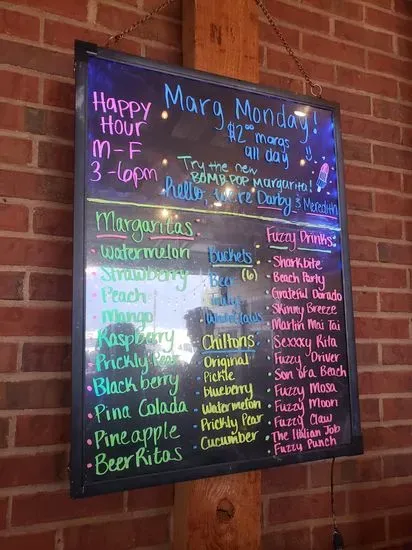 Happy
Hour
M-F
3-6pm
Marg Monday!
$2.00 margs
all day
Try the new
BOMB POP Margarita!
Hello, we're Darby & Meredith
Margaritas
Watermelon
Strawberry
Peach
Mango
Raspberry
Prickly Pear
Blackberry
Pina Colada
Pineapple
BeerRitas
Buckets
Beer (6)
Chiltons
Original
Pickle
blueberry
Watermelon
Prickly Pear
Cucumber
Fuzzy Drinks
Sharkbite
Beach Party
Grateful Dorado
Skinny Breeze
Martin Mai Tai
Sexxxy Rita
Fuzzy Driver
Son of a Beach
Fuzzy Mosa
Fuzzy Moon
Fuzzy Claw
The Italian Job
Fuzzy Punch